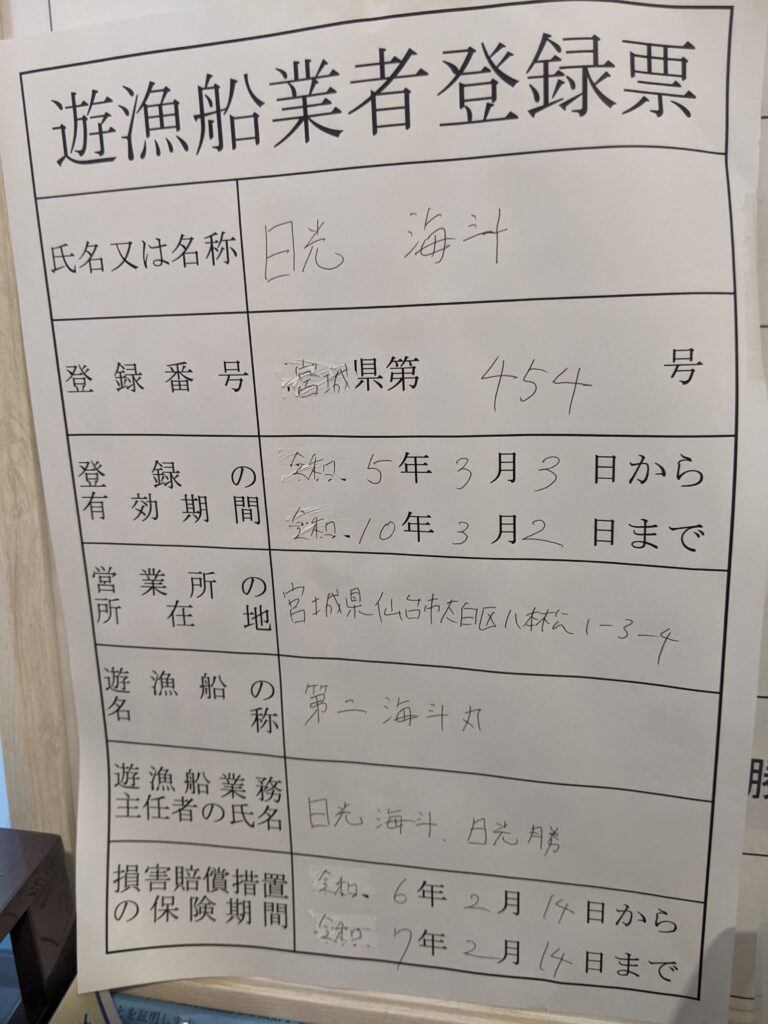 遊漁船業者登録票
氏名又は名称 日光 海斗
登録番号 宮城県第 454 号
登録の有効期間 令和 5年 3月 3日から
令和 10年 3月 2日まで
営業所の所在地 宮城県仙台市太白区八本松1-3-4
遊漁船の名称 第二 海斗丸
遊漁船業務主任者の氏名 日光 海斗、日光 勝
損害賠償措置の保険期間 令和 6年 2月 14日から
令和 7年 2月 14日まで
勝
を証明します